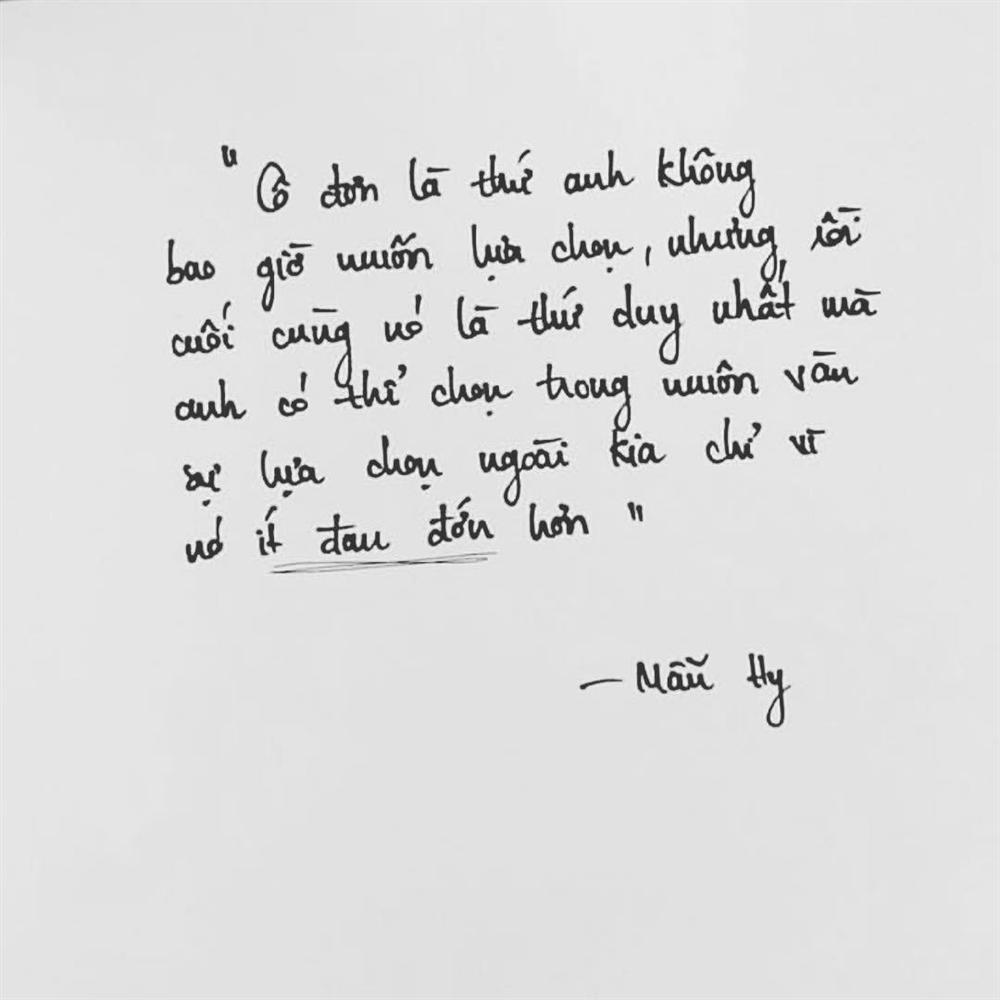 "Cô đơn là thứ anh không
bao giờ muốn lựa chọn, nhưng rồi
cuối cùng nó là thứ duy nhất mà
anh có thể chọn trong muôn vàn
sự lựa chọn ngoài kia chỉ vì
nó ít đau đớn hơn"
— Mẫn Hy